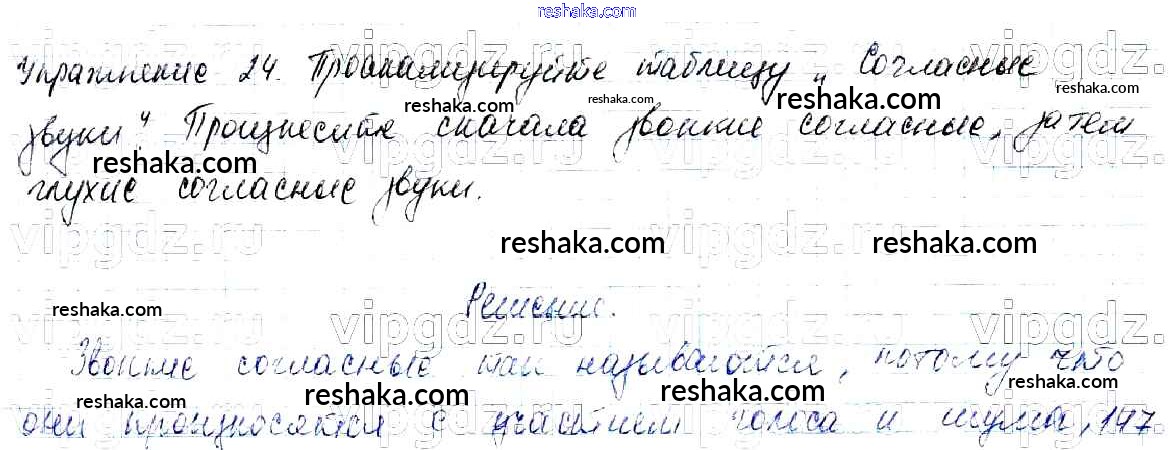 reshaka.com
Упражнение 24. Проанализируйте таблицу „Согласные
reshaka.com reshaka.com reshaka.com
звуки". Произнесите сначала звонкие согласные, затем
reshaka.com reshaka.com
глухие согласные звуки.
vipgdz.ru vipgdz.ru vipgdz.ru vipgdz.ru
reshaka.com reshaka.com
reshaka.com
Решение.
vipgdz.ru vipgdz.ru vipgdz.ru vipgdz.ru
Звонкие согласные так называются, потому что
reshaka.com reshaka.com reshaka.com reshaka.com
они произносятся с участием голоса и шума,